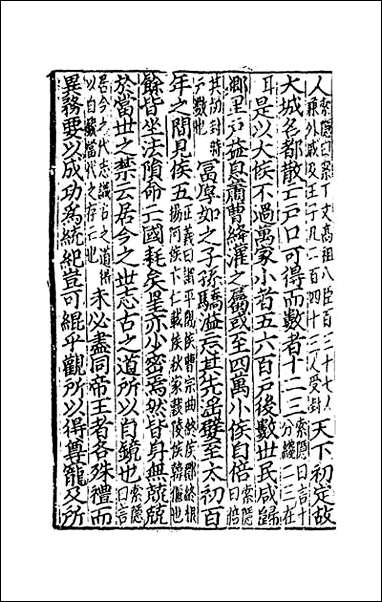 人索隱曰案下文高祖八臣百三十七人兼外戚及王子凡一百四十三人受封天下初定故
大城名都散亡戶口可得而數者十二三索隱曰言十分纔二三在
耳是以大侯不過萬家小者五六百戶後數世民咸歸
鄉里戶益息蕭曹絳灌之屬或至四萬小侯自倍索隱曰倍
其初封時戶數也富厚如之子孫驕溢忘其先淫嬖至太初百
年之間見侯五正義曰謂平陽侯曹宗曲周侯酈終根陽阿侯卞仁戴侯秋蒙穀陵侯馮偃也
餘皆坐法隕命亡國耗矣罔亦少密焉然皆身無兢兢
於當世之禁云居今之世志古之道所以自鏡也索隱曰言
居今之代志識古之道得以自鏡當代之存亡也未必盡同帝王者各殊禮而
異務要以成功為統紀豈可緄乎觀所以得尊寵及所